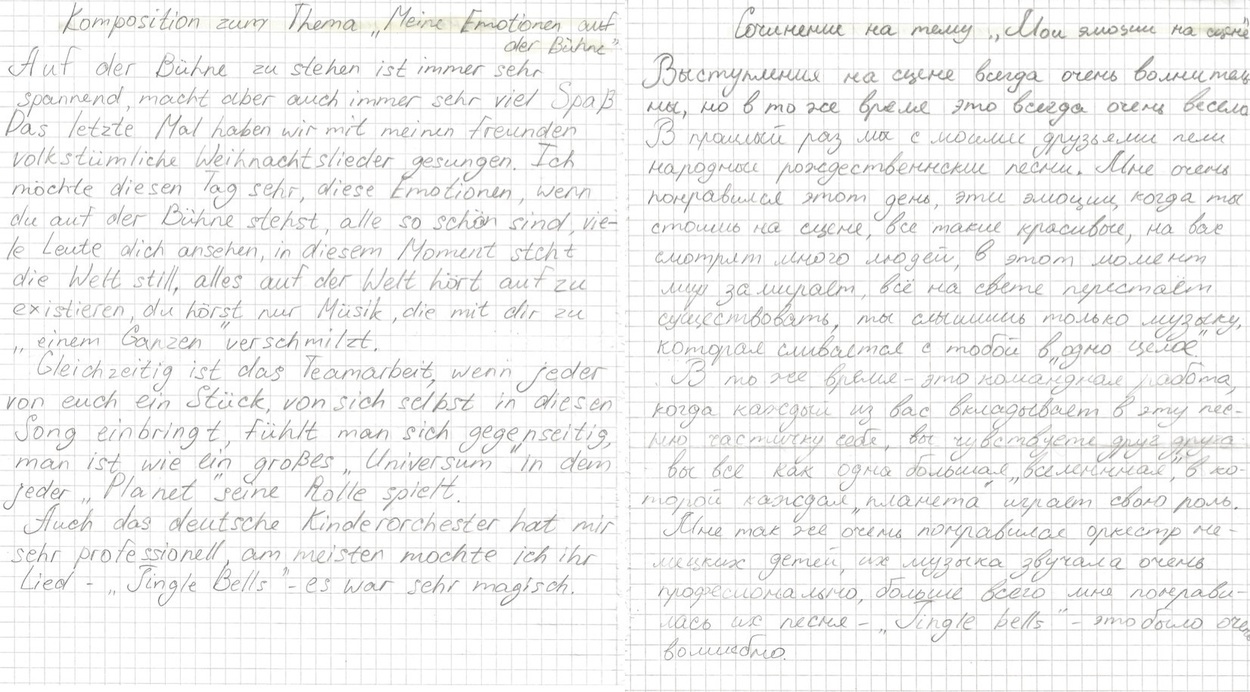 Komposition zum Thema „Meine Emotionen auf
der Bühne"
Auf der Bühne zu stehen ist immer sehr
spannend, macht aber auch immer sehr viel Spaß
Das letzte Mal haben wir mit meinen Freunden
volkstümliche Weihnachtslieder gesungen. Ich
möchte diesen Tag sehr, diese Emotionen, wenn
du auf der Bühne stehst, alle so schön sind, vie-
le Leute dich ansehen, in diesem Moment steht
die Welt still, alles auf der Welt hört auf zu
existieren, du hörst nur Müsik, die mit dir zu
„einem Ganzen" verschmilzt.
Gleichzeitig ist das Teamarbeit, wenn jeder
von euch ein Stück, von sich selbst in diesen
Song einbringt, fühlt man sich gegenseitig,
man ist, wie ein großes „Universum" in dem
jeder „Planet" seine Rolle spielt.
Auch das deutsche Kinderorchester hat mir
sehr professionell, am meisten mochte ich ihr
Lied - „Jingle Bells" - es war sehr magisch.
Сочинение на тему „Мои эмоции на сцене"
Выступления на сцене всегда очень волнитель
ны, но в то же время это всегда очень весело
В прошлый раз мы с моими друзьями пели
народные рождественнские песни. Мне очень
понравился этот день, эти эмоции, когда ты
стоишь на сцене, все такие красивые, на вас
смотрят много людей, в этот момент
мир замирает, всё на свете перестаёт
существовать, ты слышишь только музыку,
которая сливается с тобой в „одно целое"
В то же время - это командная работа,
когда каждый из вас вкладывает в эту пес-
ню частичку себя, вы чувствуете друг друга
вы все как одна большая „вселенная", в ко-
торой каждая „планета" играет свою роль.
Мне так же очень понравился оркестр не-
мецких детей, их музыка звучала очень
професионально, больше всего мне понрави-
лась их песня - „Jingle bells" - это было очень
волшебно.